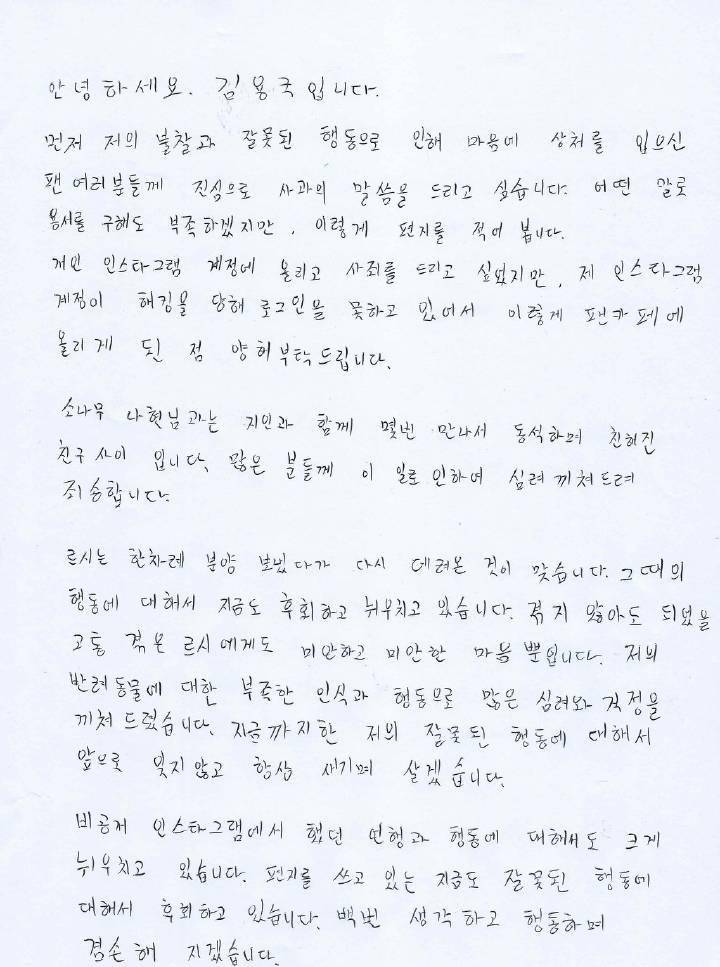 안녕하세요. 김용국입니다.
먼저 저의 불찰과 잘못된 행동으로 인해 마음에 상처를 입으신
팬 여러분들께 진심으로 사과의 말씀을 드리고 싶습니다. 어떤 말로
용서를 구해도 부족하겠지만, 이렇게 편지를 적어 봅니다.
개인 인스타그램 계정에 올리고 사죄를 드리고 싶었지만, 제 인스타그램
계정이 해킹을 당해 로그인을 못하고 있어서 이렇게 팬카페에
올리게 된 점 양허부탁드립니다.
소나무 나현님과는 지인과 함께 몇번 만나서 동석하며 친해진
친구사이 입니다. 많은 분들께 이 일로 인하여 심려 끼쳐드려
죄송합니다.
르시는 한차례 분양 보냈다가 다시 데려온 것이 맞습니다. 그때의
행동에 대해서 지금도 후회하고 뉘우치고 있습니다. 겪지 않아도 되었을
고통 겪은 르시에게도 미안하고 미안한 마음 뿐입니다. 저의
반려동물에 대한 부족한 인식과 행동으로 많은 심려와 걱정을
끼쳐 드렸습니다. 지금까지한 저의 잘못된 행동에 대해서
앞으로 잊지않고 항상 새기며 살겠습니다.
비공개 인스타그램에서 했던 언행과 행동에 대해서도 크게
뉘우치고 있습니다. 편지를 쓰고 있는 지금도 잘못된 행동에
대해서 후회하고 있습니다. 백번 생각하고 행동하며
겸손해 지겠습니다.